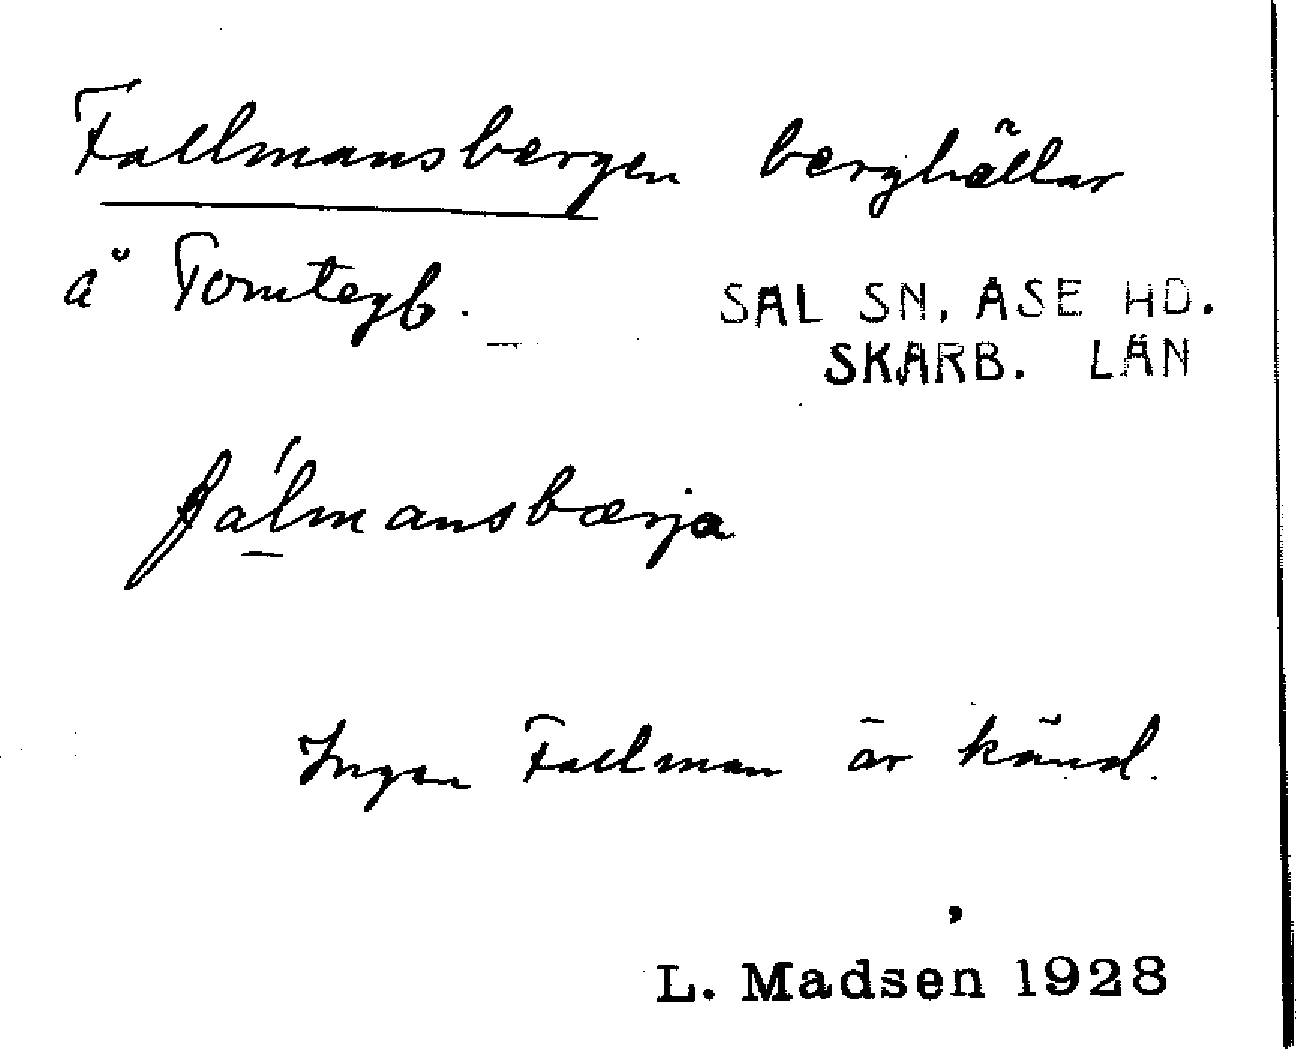 Fallmansbergen berghällar
å Tomtegb.
SAL SN. ASE HD.
SKARB. LÄN
fálmansbærja
Ingen Fallman är känd.
L. Madsen 1928